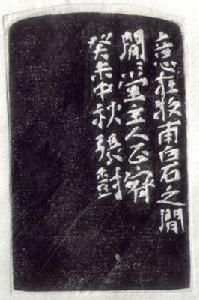 意在牧甫白石之間
間堂主人正 窮
癸未中秋 張對